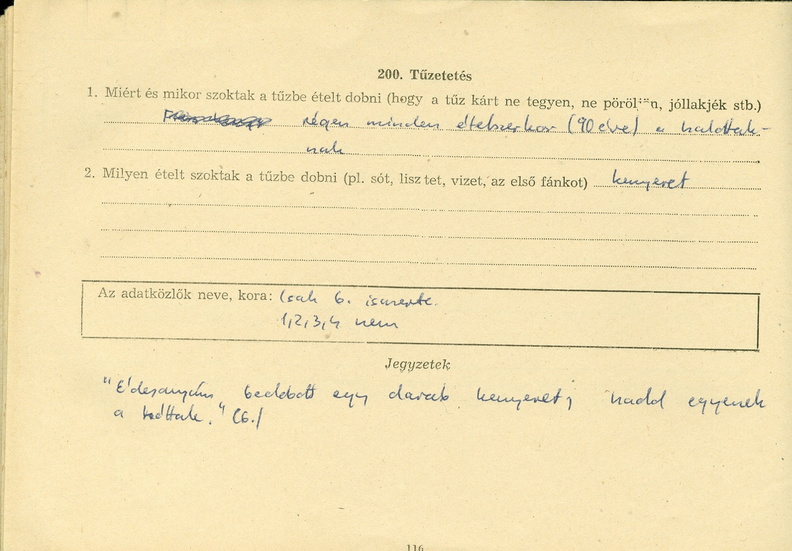 200. Tűzetetés
1. Miért és mikor szoktak a tűzbe ételt dobni (hogy a tűz kárt ne tegyen, ne pöröljön, jóllakjék stb.)
régen minden ételkor (90 éve) a halottak-
nak
2. Milyen ételt szoktak a tűzbe dobni (pl. sót, lisztet, vizet, az első fánkot) kenyeret
Az adatközlők neve, kora: Csak 6. ismerte.
1,2,3,4 nem
Jegyzetek
"Édesanyám bedobott egy darab kenyeret; hadd egyenek
a hóttak." (6.)
116